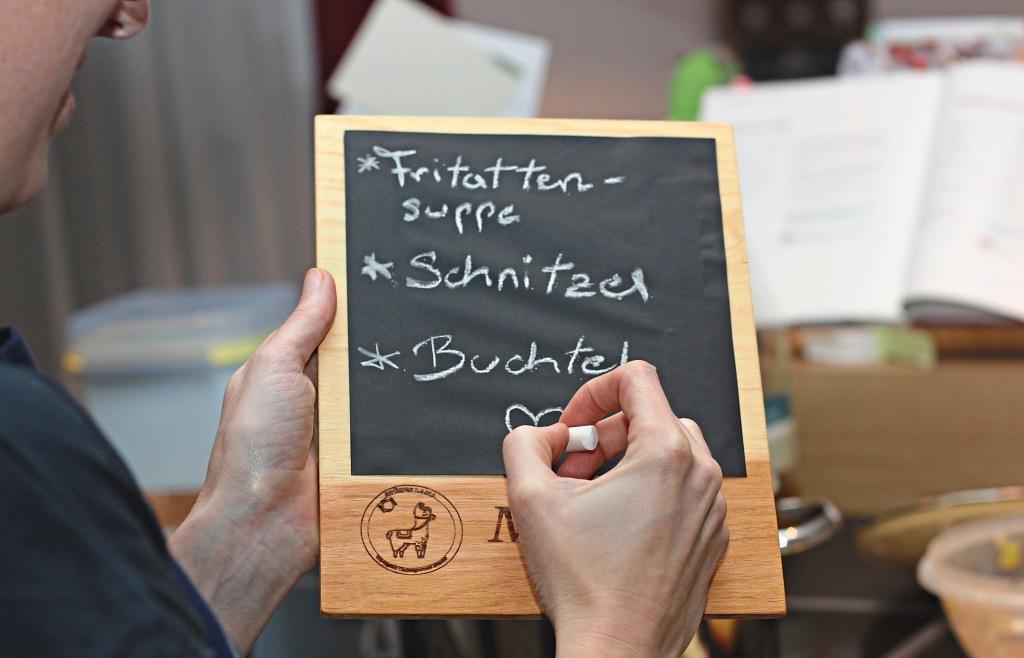 * Fritatten-
suppe
* Schnitzel
* Buchtel
M